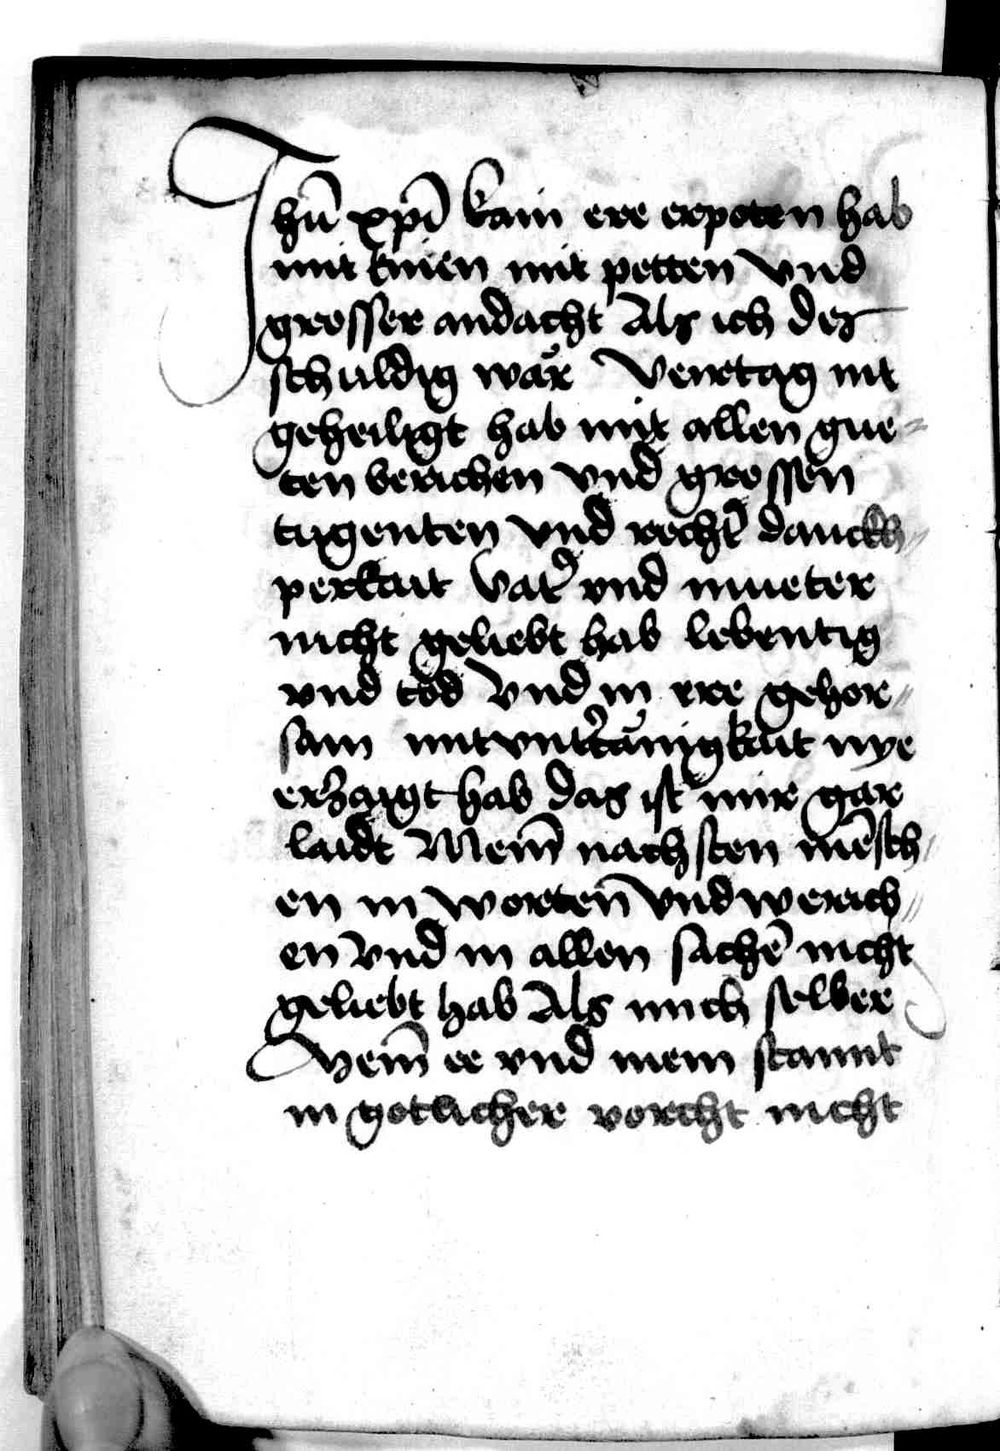 Jhū xp̄i kain ere erpoten hab
mit knien mit petten vnd
grosser andacht Als ich des
schuldig wär Veirtag nit
geheiligt hab mit allen gue-
ten berichen vnd grossen
tugenten vnd recht̄ danckh-
perkait Vat̄ vnd mueter
nicht geliebt hab lebentig
vnd tod Vnd in ere gehor-
sam mit vnttänigkait nye
erzaigt hab das ist mir gar
laidt Mein̄ nachsten mēsch-
en in worten̄ vnd werich-
en vnd in allen sachē nicht
geliebt hab Als mich selber
Mein̄ ee vnd mein stannt
in gotlicher vorcht nicht